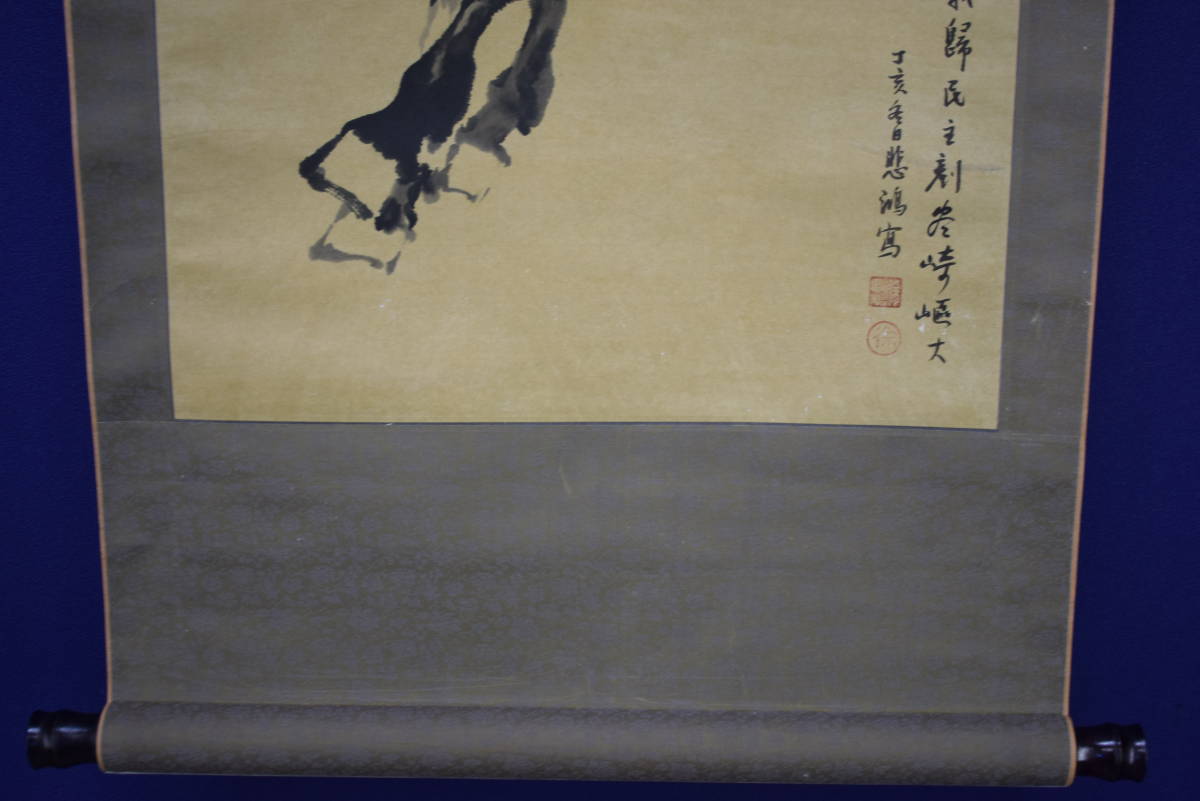 歸民主剷除崎嶇大
丁亥冬日悲鴻寫